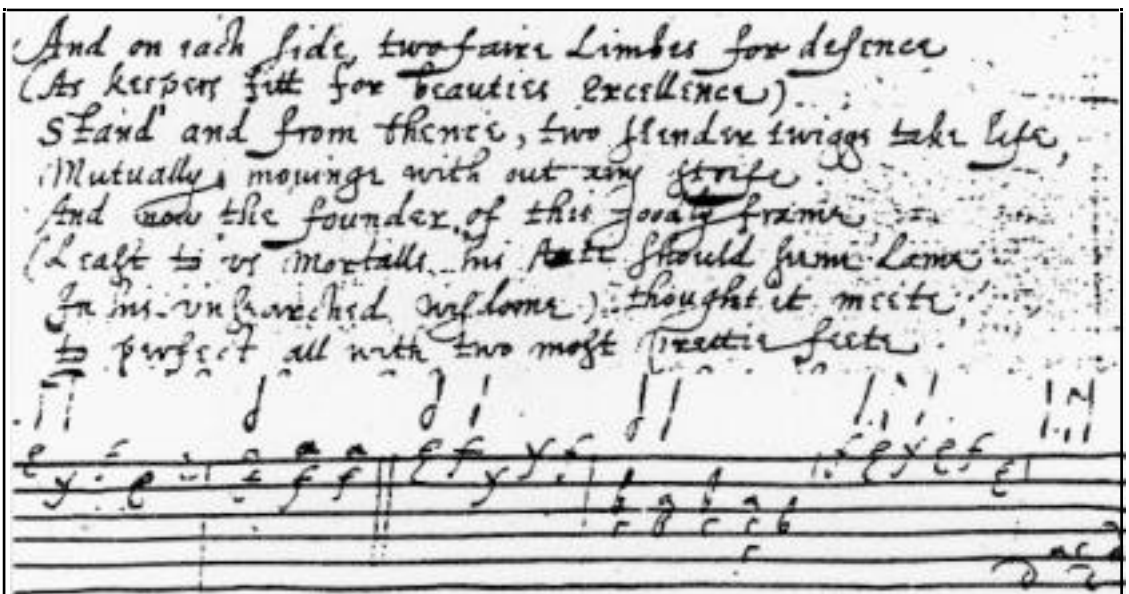 And on each side, two faire Limbes for defence
(As keepers fitt for beauties Excellence)
Stand and from thence, two slender twiggs take life,
Mutually movinge with out any strife
And now the founder of this goodly frame
(Least to vs Mortalls his Arte should seme Lame
In his vnsearched wysdome) thought it meete
to perfect all with two most prettie feete